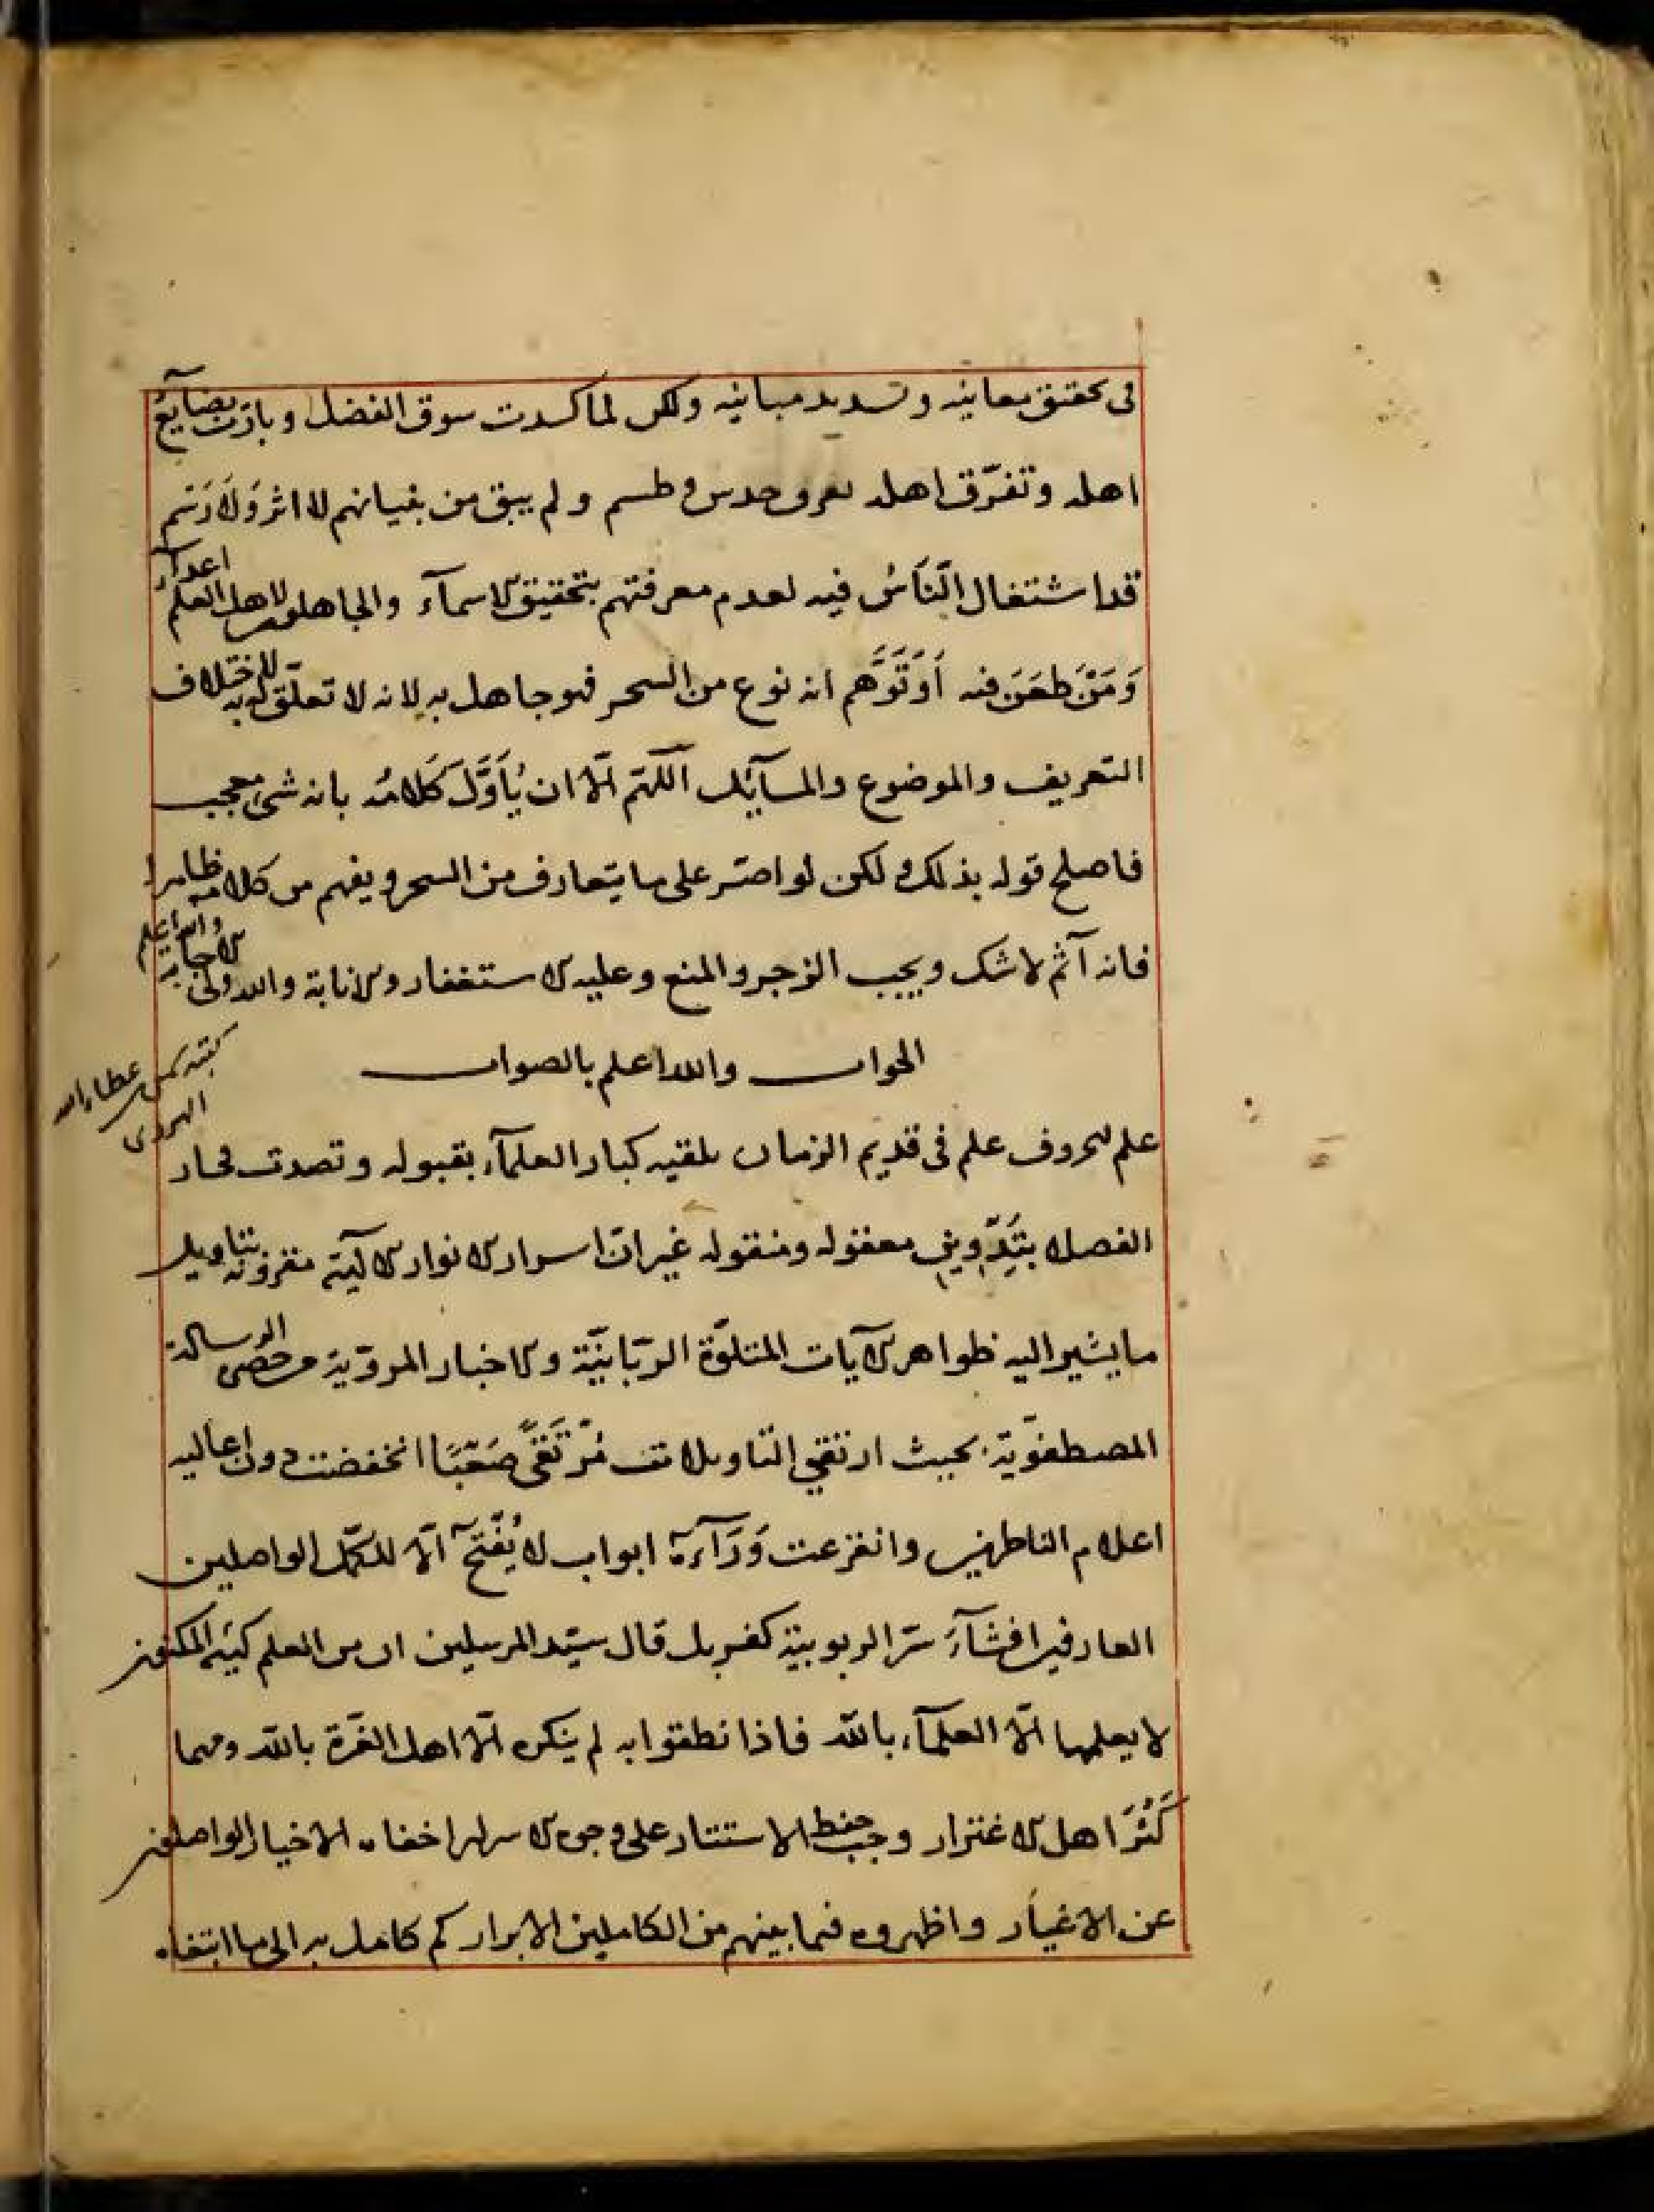 فى تحقيق معانيه وتسديد مبانيه ولكن لما كسدت سوق الفضل وبارت بضايع
اهله وتفرّق اهله درس وطسم ولم يبق من بنيانهم لا اثر وَلَا رَسَم
قد اشتغال النَّاسُ فيه لعدم معرفتهم بتحقيق الاسمآء والجاهلون لاهل العلم اعدآء
وَمَنْ طَعَنَ فيه أَوْ تَوَهَّم انه نوع من السحر فهو جاهل به لانه لا تعلّق له به للاختلاف
التعريف والموضوع والمسآئل اللّهمّ الّا ان يُأَوَّلَ كَلَامُه بانه شئ عجيب
فاصلح قوله بذلك ولكن لو اصرّ على ما يتعارف من السحر ويفهم من كلامه ظاهرا
فانه آثم لا شك ويجب الزجر والمنع وعليه الاستغفار والانابة والله ولى الاجابة والله اعلم
كتبه عطاء الله
الجواب والله اعلم بالصواب
علم الحروف علم فى قديم الزمان تلقيه كبار العلمآء بقبوله وتصدت
الفضلاء بتدوين معقوله ومنقوله غير انّ اسرار الانوار الآلٓية مقرونة بتاويل
ما يشير اليه ظواهر الآيات المتلوّة الرّبّانيّة والاخبار المرويّة الرسالة
المصطفويّة بحيث ارتقي التاويلات مُرْتَقًى صَعْبًا انخفضت دون اعاليه
اعلام الناظرين وانقزعت وَرَآءَهُ ابواب لا يُفْتَح الّا للكمّل الواصلين
العارفين افشآء سرّ الربوبية كفر بل قال سيّد المرسلين ان من العلم كهيئة المكنون
لا يعلمها الّا العلمآء بالله فاذا نطقوا به لم ينكره الّا اهل الغرّة بالله ومهما
كَثُرَ اهل الاغترار وجب حفظ الاستتار على وجوه الاسرار اخفاه الاخيار الواصلون
عن الاغيار واظهروه فيما بينهم من الكاملين الابرار كم كامل به الى ما ابتغاه